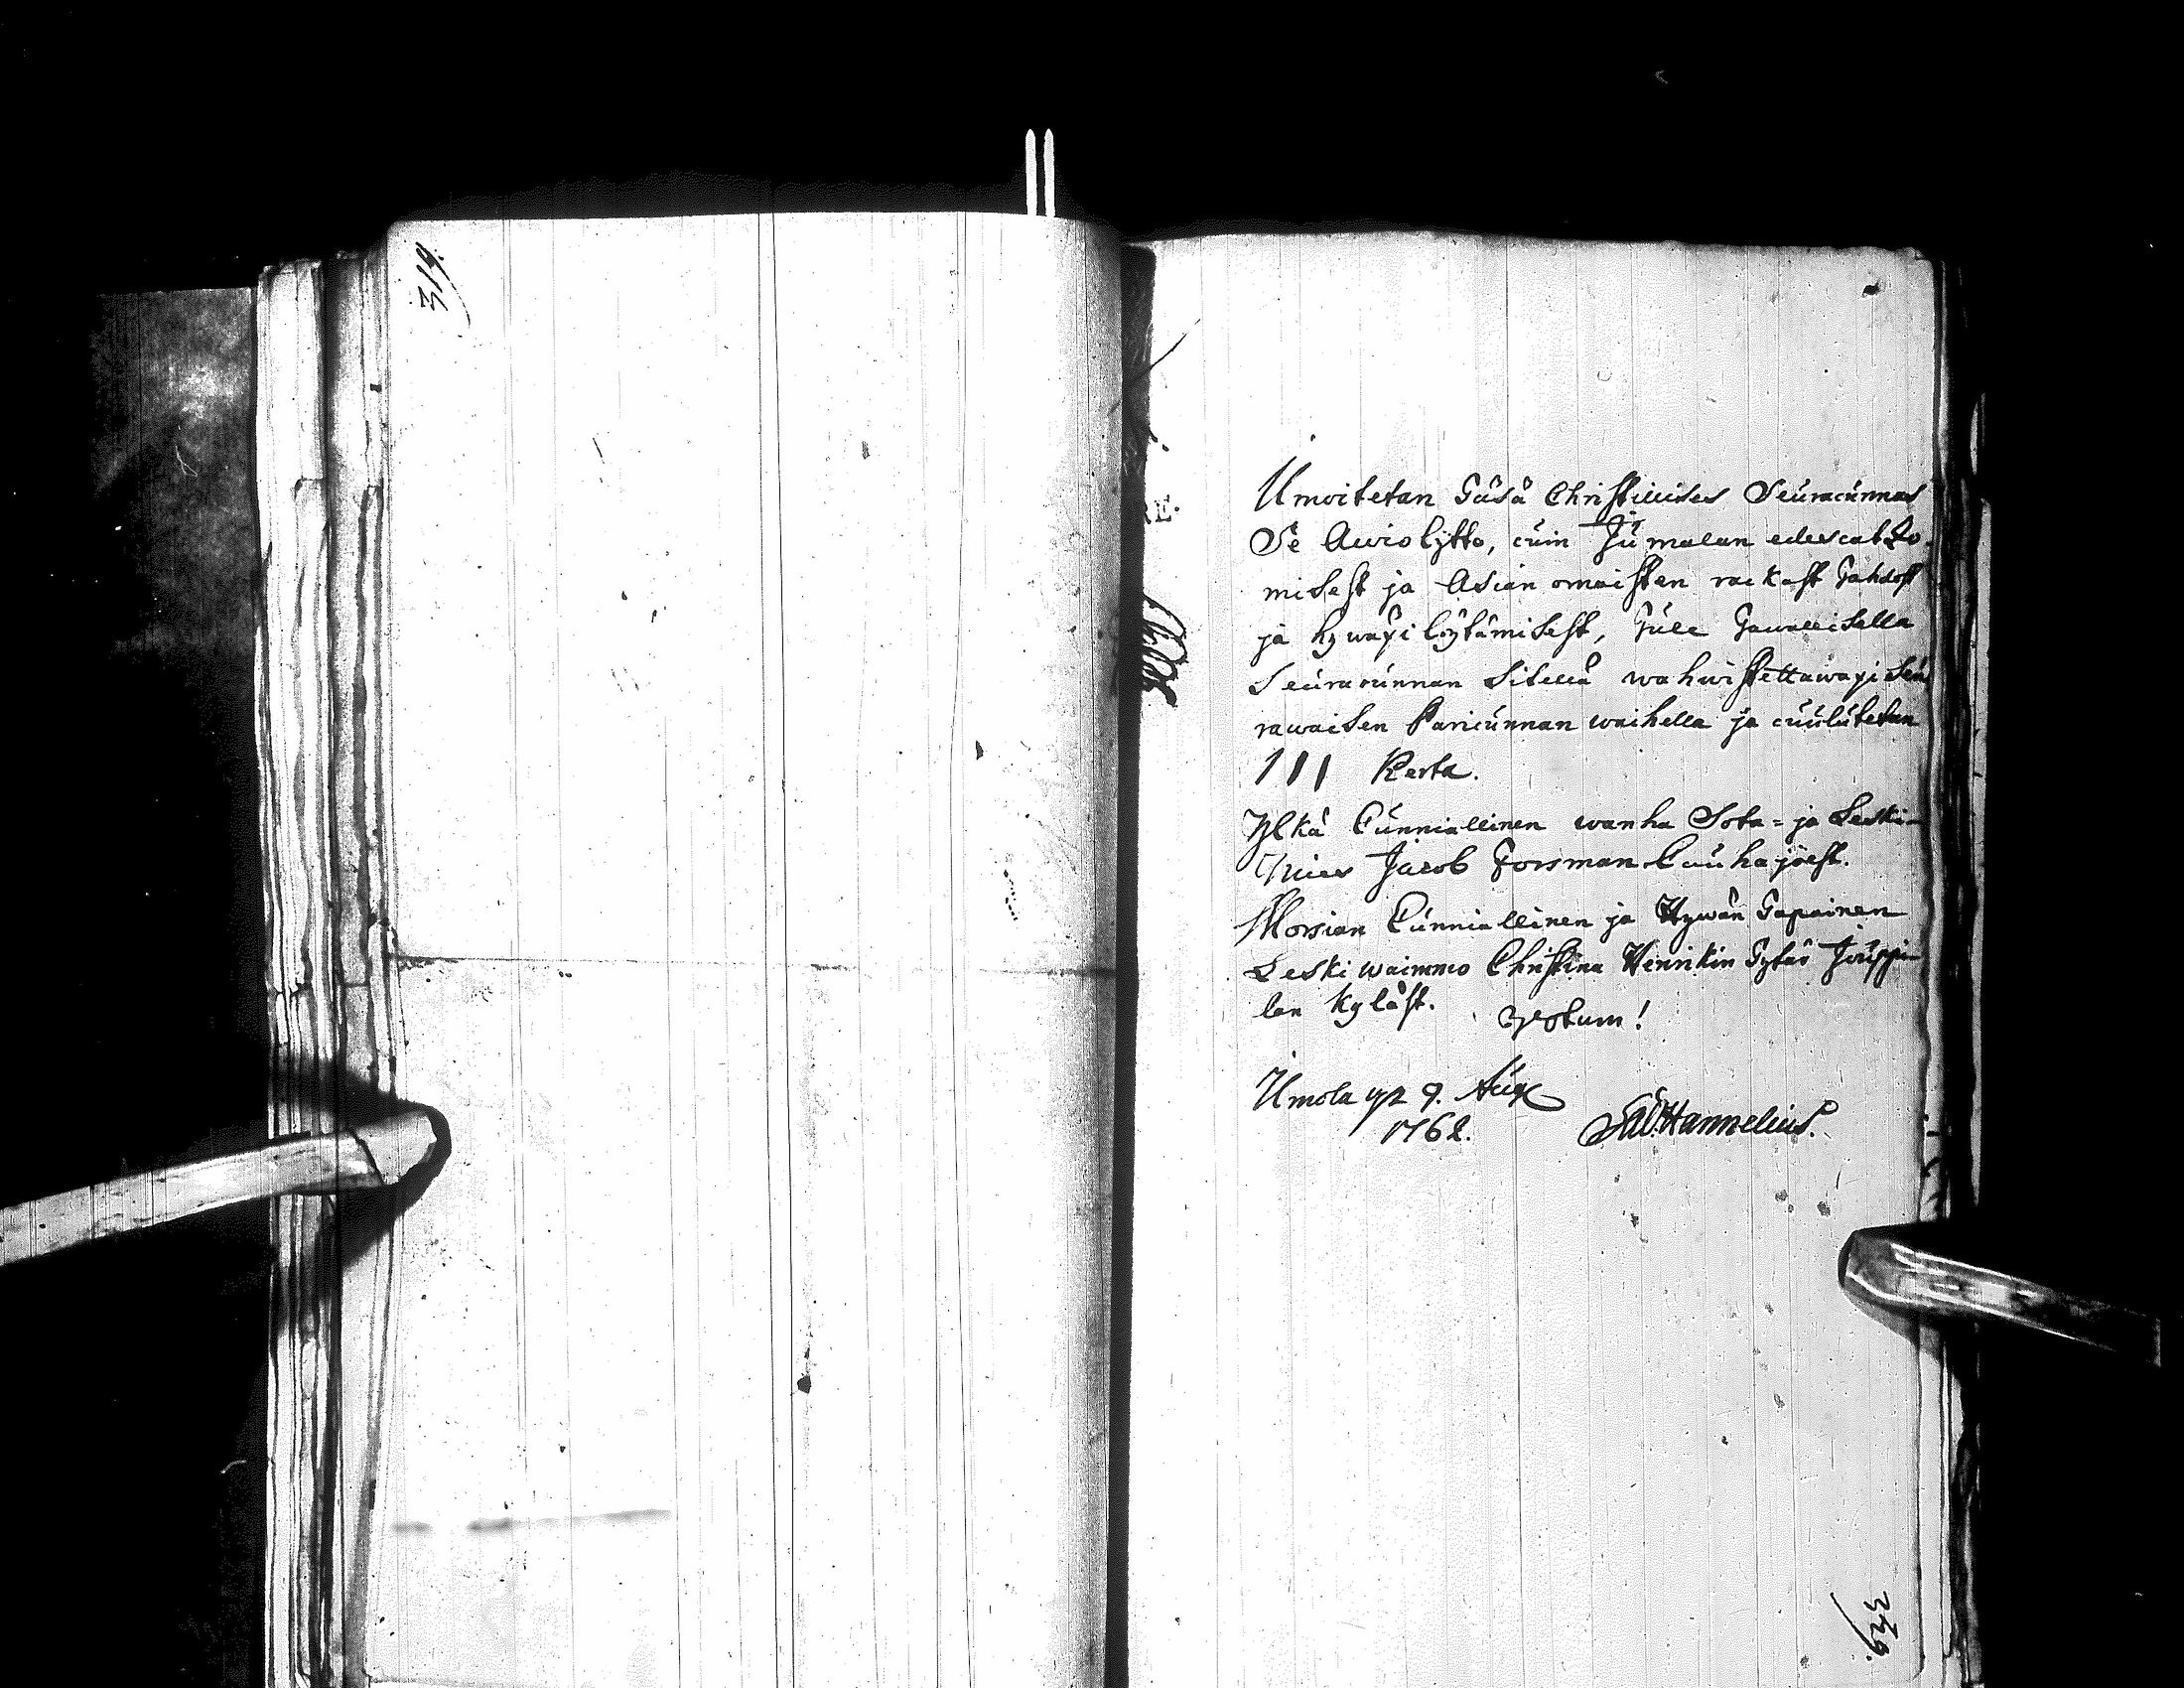 319.
Ilmoitetan täsä Christillises Seuracunnas
Se Awiolijtto, cuin Jumalan edescatzo-
misest ja Asian omaisten rackast tahdost
ja hywäxi löytämisest, tule tawallisella
Seuracunnan sitellä wahwistettawaxi seu
rawaisen Paricunnan waihella ja cuulutetan
III Kerta.
Ylkä Cunniallinen wanha Sota= ja Leski-
Mies Jacob Forsman Cauhajoest.
Morsian Cunniallinen ja Hywän tapainen
Leski waimmo Christina Henrikin tytär Jouppi-
lan kyläst.
Votum!
Ilmola 9. Aug
1762.
Hannelius.
320.